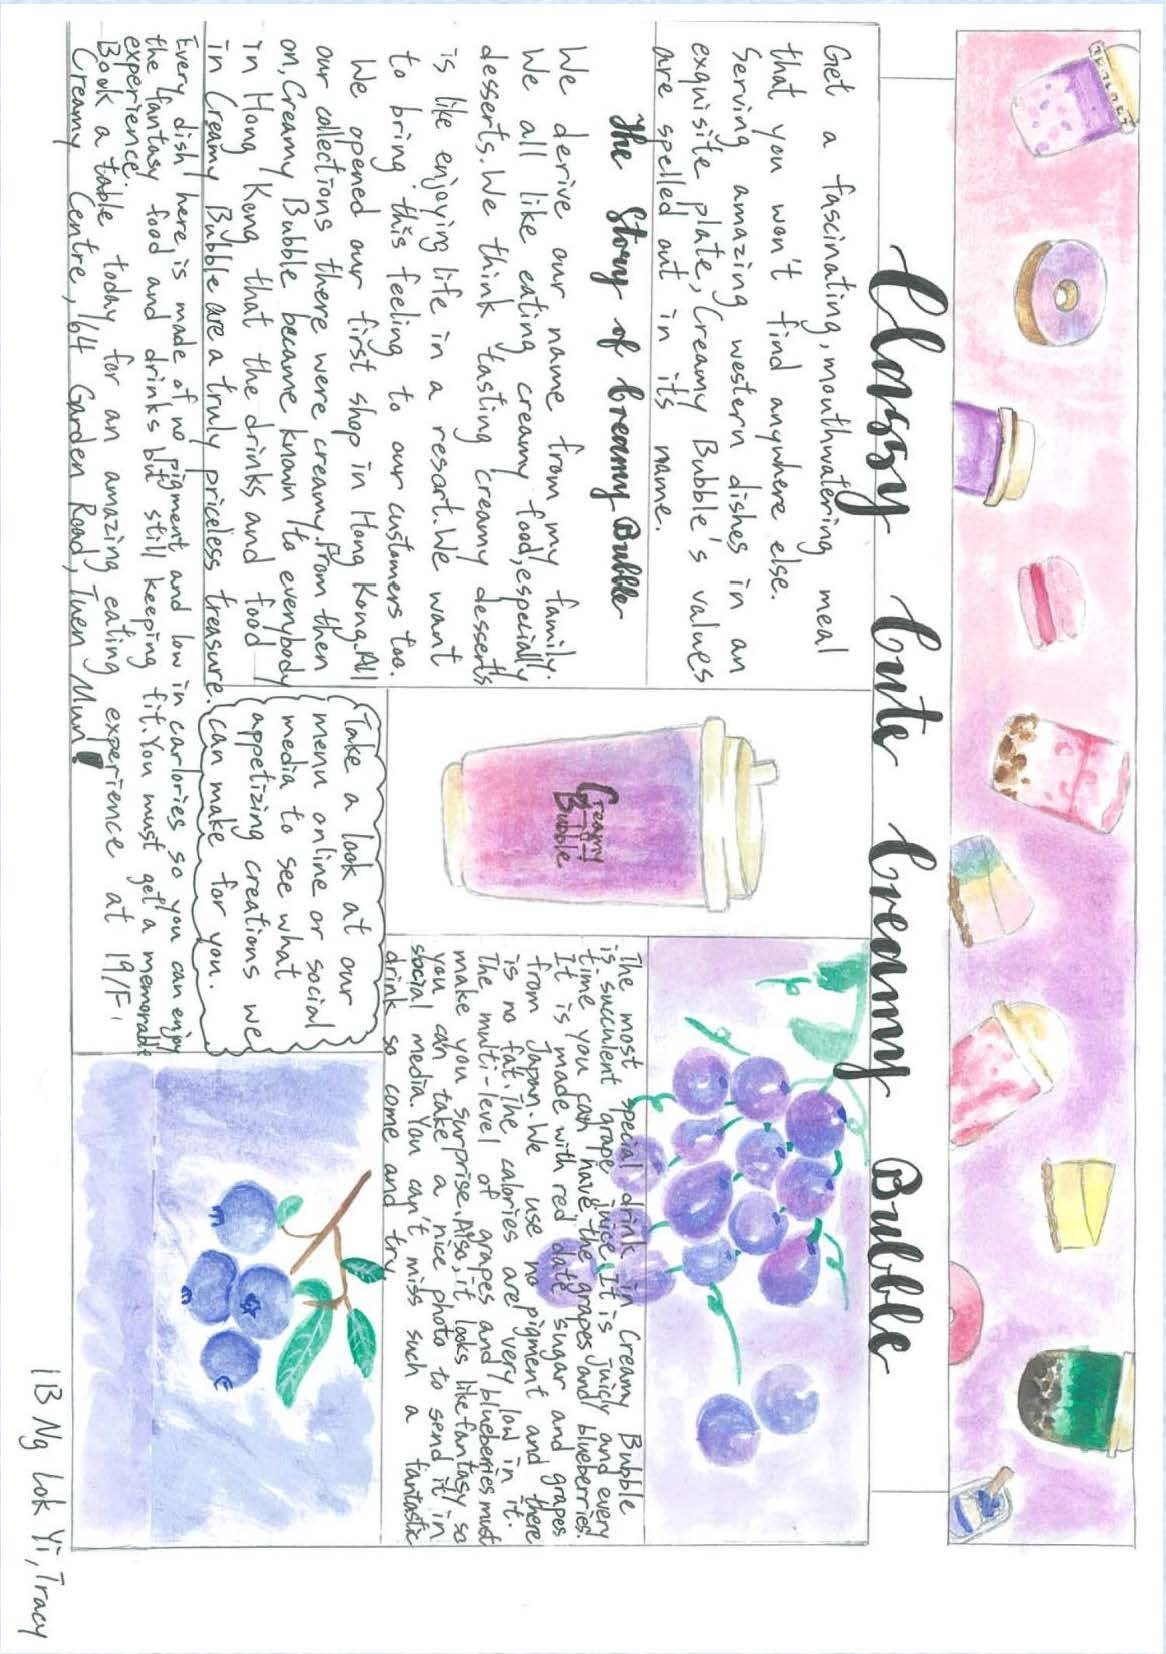 Classy Cute Creamy Bubble
Get a fascinating, mouthwatering meal
that you won't find anywhere else.
Serving amazing western dishes in an
exquisite plate, Creamy Bubble's values
are spelled out in its name.
The Story of Creamy Bubble
We derive our name from my family.
We all like eating creamy food, especially
desserts. We think tasting creamy desserts
is like enjoying life in a resort. We want
to bring this feeling to our customers too.
We opened our first shop in Hong Kong. All
our collections there were creamy. From then
on, Creamy Bubble became known to everybody
in Hong Kong that the drinks and food
in Creamy Bubble are a truly priceless treasure.
Every dish here is made of no pigment and low in carlories so you can enjoy
the fantasy food and drinks but still keeping fit. You must get a memorable
experience.
Book a table today for an amazing eating experience at 19/F,
Creamy Centre, 164 Garden Road, Tuen Mun!
Creamy
Bubble
Take a look at our
menu online or social
media to see what
appetizing creations we
can make for you.
The most special drink in Creamy Bubble
is succulent grape juice. It is juicy and every
time you can have the grapes and blueberries.
It is made with red date sugar and grapes
from Japan. We use no pigment and there
is no fat. The calories are very low in it.
The multi-level of grapes and blueberries must
make you surprise. Also, it looks like fantasy so
you can take a nice photo to send it in
social media. You can't miss such a fantastic
drink so come and try.
1B Ng Lok Yi, Tracy